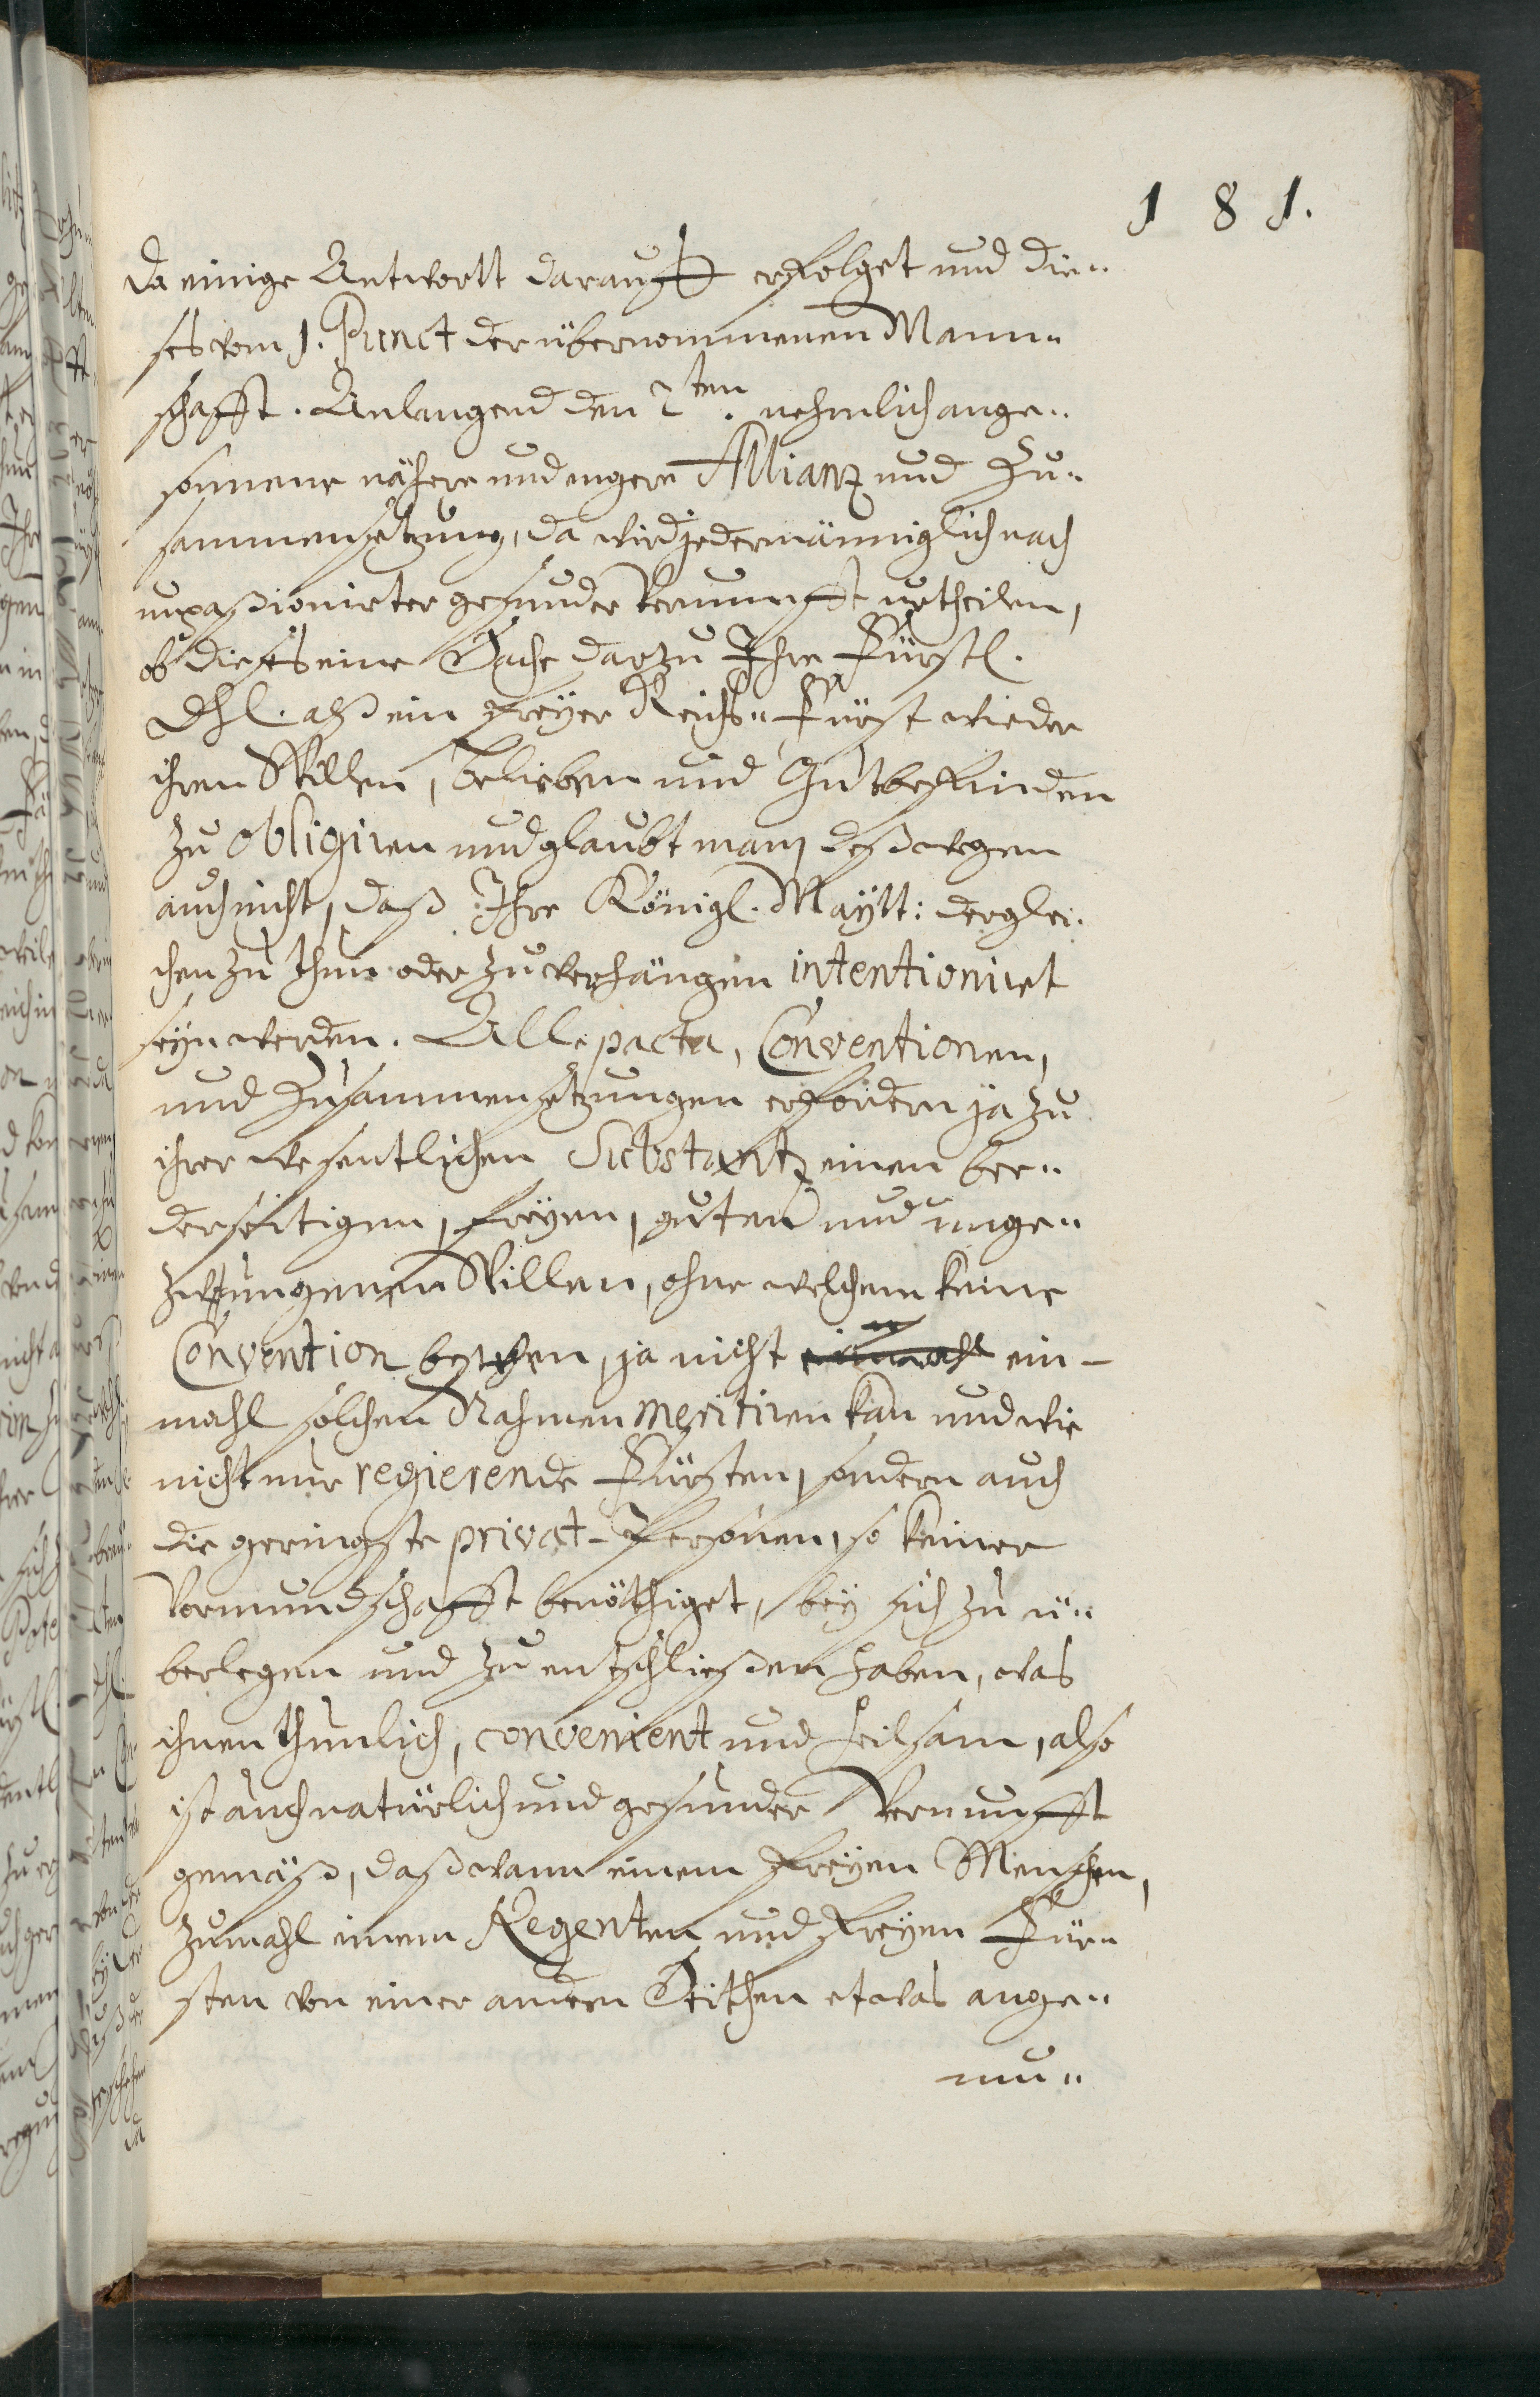 181.
da einige Antwortt darauff erfolget und die=
ses vom 1. Punct der übernommenen Mann=
schafft. Anlangend den 2ten. nehmlich ange=
sonnene nähere und engere Allianz und Zu=
sammensetzung, da wird jedermänniglich nach
unpaßionirter gesunder Vernunfft urtheilen,
ob dieses eine Sache darzu Ihre Fürstl.
Dhl. alß ein freyer Reichs= Fürst wieder
ihren Willen, belieben und Gutbefinden
zu obligiren und glaubt man deßwegen
auch nicht, daß Ihre Königl. Maytt: derglei=
chen zu thun oder zu verhängen intentioniret
seyn werden. Alle pacta, Conventionen,
und Zusammensetzungen erfordern ja zu
ihrer wesentlichen Substantz einen bee=
derseitigen, freyen, guten und unge=
zwungenen Willen, ohne welchem keine
Convention bestehen, ja nicht einmahl ein-
mahl solchen Nahmen meritiren kan und wie
nicht nur regierende Fürsten, sondern auch
die geringste privat-Personen, so keiner
Vormundschafft benöthiget, bey sich zu ü=
berlegen und zu entschließen haben, was
ihnen thunlich, convenient und heilsam, also
ist auch natürlich und gesunder Vernunfft
gemäß, daß wann einem freyen Menschen,
zumahl einem Regenten und freyen Für=
sten von einer andern Seithen etwas ange=
mu=